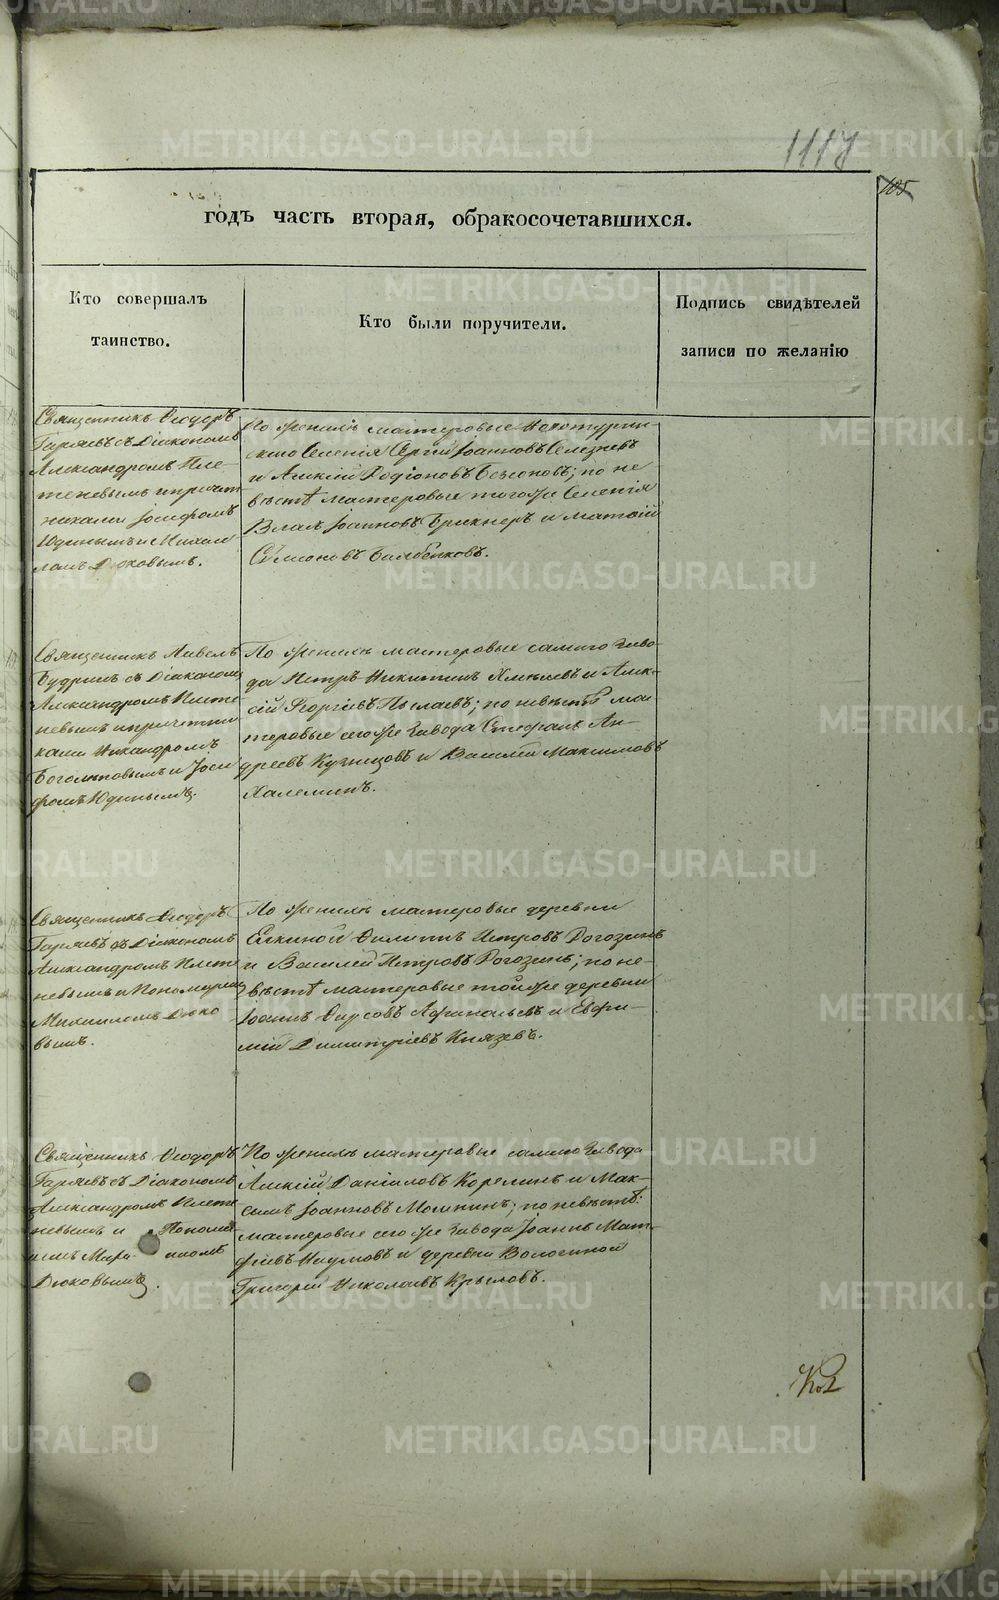 1117
105
годъ часть вторая, обракосочетавшихся.
Кто совершалъ
таинство.
Кто были поручители.
Подпись свидѣтелей
записи по желанію
Священникъ Ѳеодоръ
Гаряевъ съ Діакономъ
Александромъ Пле-
теневымъ и причет
никами Іосифомъ
Юдинымъ и Михаи
ломъ Дюковымъ.
По женихѣ мастеровые Нижнетурин-
скаго Селенія Сергій Іоанновъ Селезневъ
и Алексій Родіоновъ Безсоновъ; по не
вѣстѣ мастеровые того же Селенія
Власъ Іоанновъ и Матѳій
Симеоновъ
Священникъ Павелъ
Будринъ съ Діакономъ
Александромъ Плете
невымъ и причетни
ками Никандромъ
Боголѣповымъ и Іоси
фомъ Юдинымъ.
По женихѣ мастеровые самаго Заво-
да Петръ Никитинъ и Алек-
сій Георгіевъ по невѣстѣ мас
теровые сего же Завода Стефанъ Ан-
дреевъ Кузнецовъ и Василій Максимовъ
Халемин
Священникъ Ѳеодоръ
Гаряевъ съ Діакономъ
Александромъ Плете
невымъ и Пономаремъ
Михаиломъ Дюко
вымъ.
По женихѣ мастеровые деревни
Елкиной Филиппъ Петровъ Рогозинъ
и Василій Петровъ Рогозинъ; по не-
вѣстѣ мастеровые той же деревни
Іоаннъ Фирсовъ и Евфи-
мій Димитріевъ Князевъ.
Священникъ Ѳеодоръ
Гаряевъ съ Діакономъ
Александромъ Плете
невымъ и Понома
ремъ Миха иломъ
Дюковымъ.
По женихѣ мастеровые самаго Завода
Алексій Даніиловъ Корелинъ и Мак-
симъ Іоанновъ по невѣстѣ:
мастеровые сего же Завода Іоаннъ Мат-
ѳіевъ Наумовъ и деревни Волосиной
Григорій Николаевъ Крыловъ.
METRIKI.GASO-URAL.RU